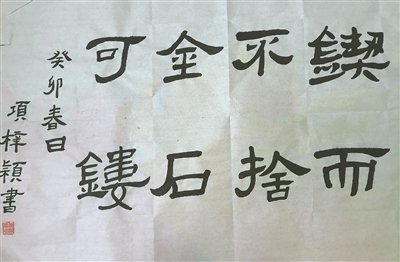 鍥而
不舍
金石
可鏤
癸卯春日
項梓穎書